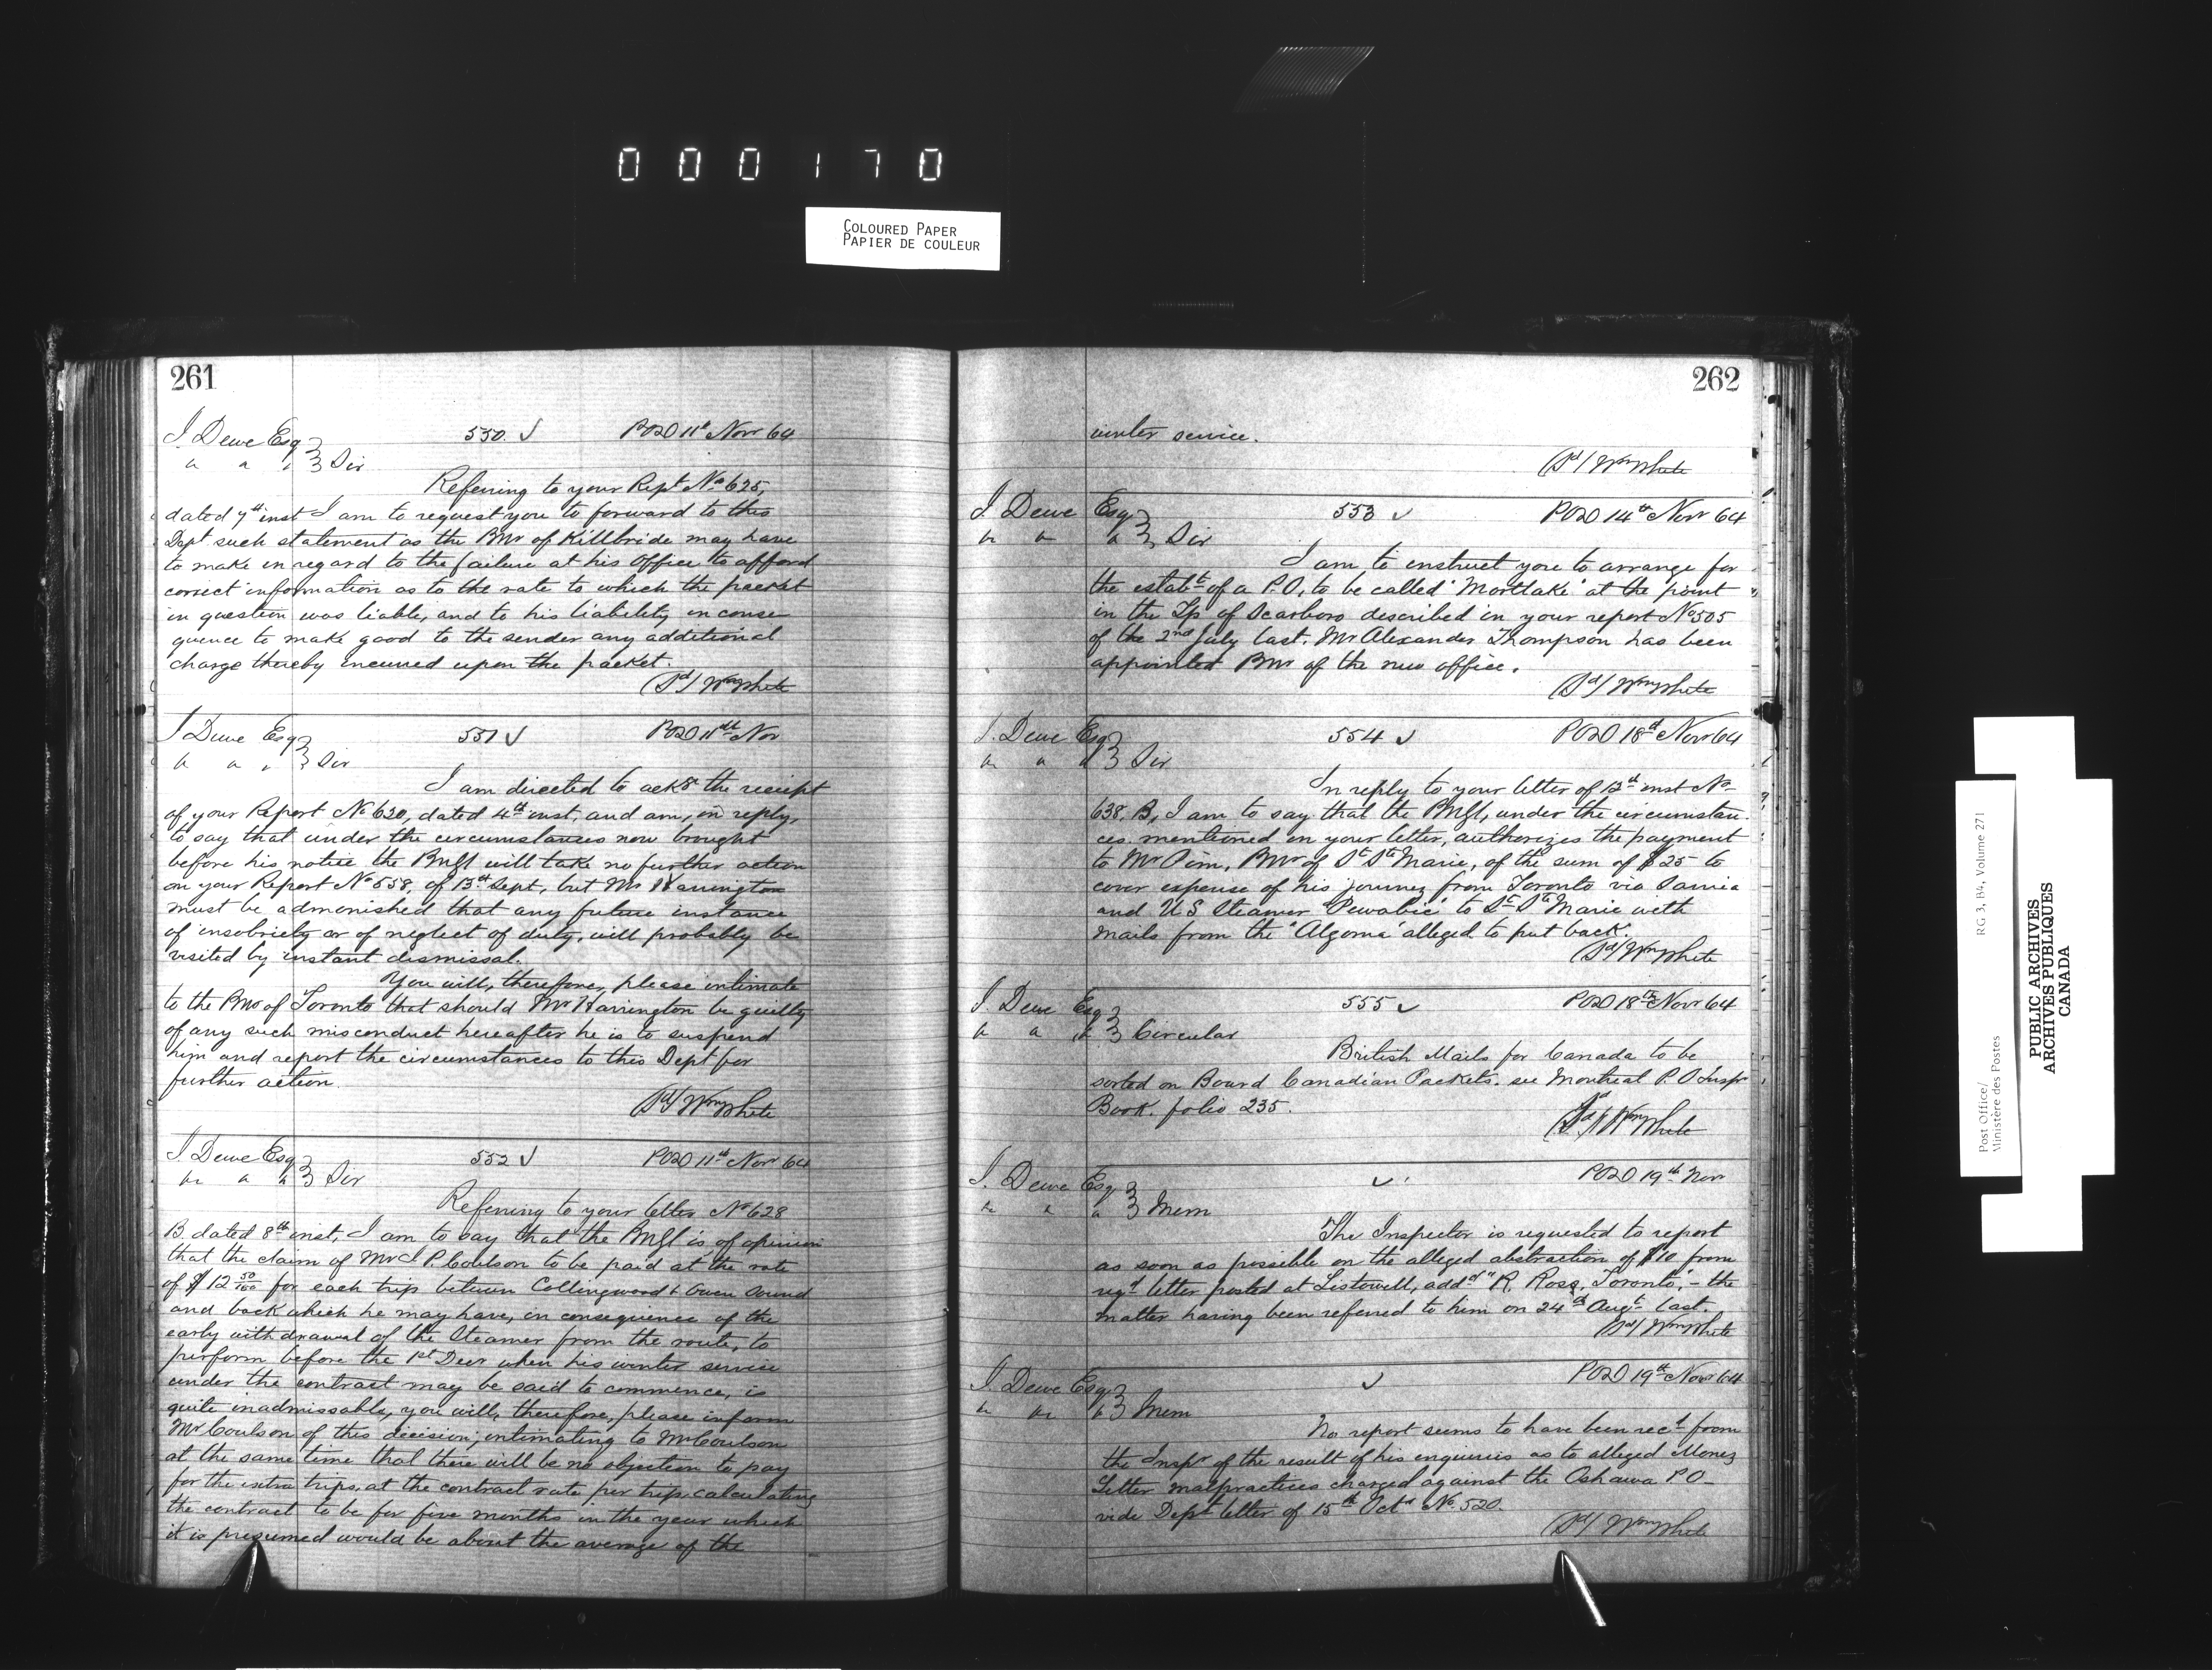 000170
COLOURED PAPER
PAPIER DE COULEUR
261
J. Dewe Esq 550. ✓ POD 11th Novr 64
" " " Sir
Referring to your Rept No 625,
dated 7th inst I am to request you to forward to this
Dept such statement as the PMr of Killbride may have
to make in regard to the failure at his Office to afford
correct information as to the rate to which the packet
in question was liable, and to his liability in conse
quence to make good to the sender any additional
charge thereby incurred upon the packet.
(Sd/ Wm White
J Dewe Esq 551 ✓ POD 11th Nov
" " " Sir
I am directed to ackge the receipt
of your Report No 620, dated 4th inst, and am, in reply,
to say that under the circumstances now brought
before his notice the PMGl will take no further action
on your Report No 558, of 13th Sept, but Mr Harrington
must be admonished that any future instance
of insobriety or of neglect of duty, will probably be
visited by instant dismissal.
You will, therefore, please intimate
to the PMr of Toronto that should Mr Harrington be guilty
of any such misconduct hereafter he is to suspend
him and report the circumstances to this Dept for
further action.
(Sd/ Wm White
J. Dewe Esq 552 ✓ POD 11th Novr 64
" " " Sir
Referring to your letter No 628
B. dated 8th inst, I am to say that the PMGl is of opinion
that the claim of Mr J P. Coulson to be paid at the rate
of $12 50/100 for each trip between Collingwood & Owen Sound
and back which he may have, in consequence of the
early withdrawal of the Steamer from the route, to
perform before the 1st Decr when his winter service
under the contract may be said to commence, is
quite inadmissable, you will, therefore, please inform
Mr Coulson of this decision, intimating to Mr Coulson
at the same time that there will be no objection to pay
for the extra trips, at the contract rate per trip, calculating
the contract to be for five months in the year which
it is presumed would be about the average of the
262
winter service.
(Sd/ Wm White
J. Dewe Esq 553 ✓ POD 14th Novr 64
" " " Sir
I am to instruct you to arrange for
the estabt of a P.O, to be called "Mortlake" at the point
in the Tp of Scarboro described in your report No 505
of the 2nd July last. Mr Alexander Thompson has been
appointed PMr of the new office.
(Sd/ Wm White
J. Dewe Esq 554 ✓ POD 18th Novr 64
" " " Sir
In reply to your letter of 12th inst No
638. B, I am to say that the PMGl, under the circumstan
ces mentioned in your letter, authorizes the payment
to Mr Pim, PMr of St Ste Marie, of the sum of $25 to
cover expense of his journey from Toronto via Sarnia
and U S Steamer "Pewabic" to St Ste Marie with
mails from the "Algoma" alleged to put back.
(Sd/ Wm White
J. Dewe Esq 555 ✓ POD 18th Novr 64
" " " Circular
British Mails for Canada to be
sorted on Board Canadian Packets. see Montreal P.O Inspr
Book. folio 235.
(Sd/ Wm White
J. Dewe Esq ✓ POD 19th Novr
" " " Mem
The Inspector is requested to report
as soon as possible on the alleged abstraction of $10 from
regd letter posted at Listowell, addd "R. Ross, Toronto", - the
matter having been referred to him on 24th Augt last.
(Sd/ Wm White
J. Dewe Esq ✓ POD 19th Novr 64
" " " Mem
No report seems to have been recd from
the Inspr of the result of his enquiries as to alleged Money
Letter malpractices charged against the Oshawa P O -
vide Dept letter of 15th Octr No. 520.
(Sd/ Wm White
Post Office/
Ministère des Postes
RG 3, B4, Volume 271
PUBLIC ARCHIVES
ARCHIVES PUBLIQUES
CANADA